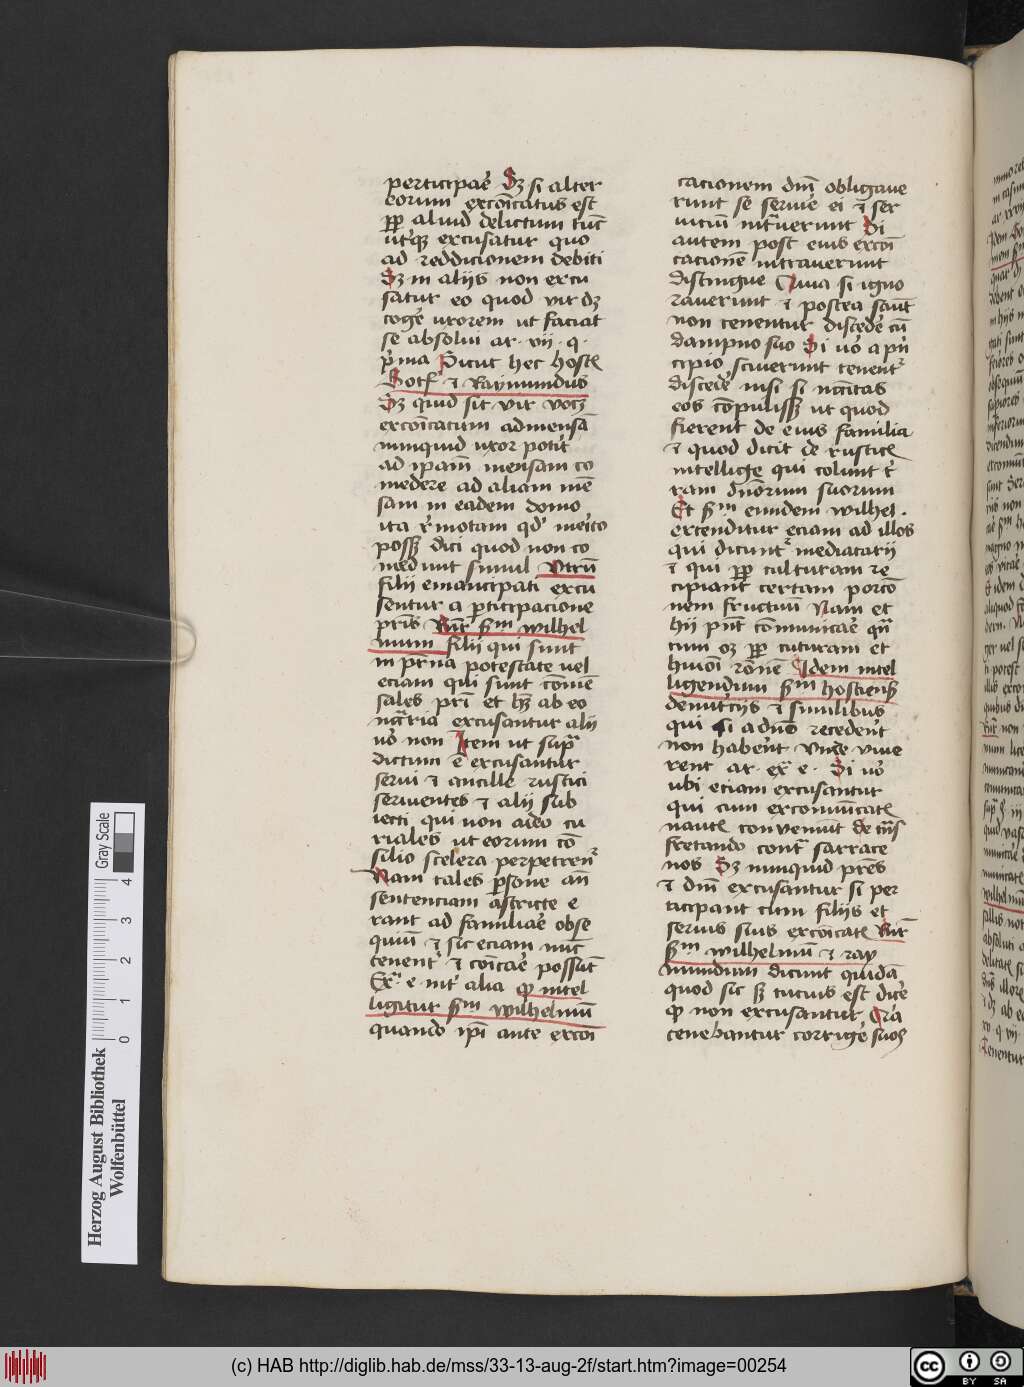 perticipaē Sꝫ si alter
eorum excōicatus est
ꝓp aliud delictum tūc
utꝰqꝫ excusatur quo
ad reddicionem debiti
Sꝫ in aliis non excu
satur eo quod vir dꝫ
cogē uxorem ut faciat
se absolui ar · vij · q ·
pͥma Sicut hec hostꝭ
Gotf̄ ⁊ Raymundus
Sꝫ quid sit vir vocꝫ
excōicatum ad mensā
nunquid uxor potit̄
ad ip̄am mensam co
medere ad aliam mē
sam in eadem domo
ita rͤmotam qđ meīto
possꝫ dici quod non co
med unt simul Vtrū
filii emancipati excu
sentur a ꝑticipacione
pris̄ Rn̄r ẜm wilhel
mum filii qui sunt
in pr̄na potestate uel
eciam qui sunt cōmē
sales pr̄i et hꝫ ab eo
nc̄ria excusantur alij
uō non Item ut supͣ
dictum ē excusantur
serui ⁊ ancille rustici
seruientes ⁊ alij sub
iecti qui non adeo cu
riales ut eorum cō
silio scelera perpetrenͭ
Nam tales ꝑsone an̄
sentenciam astricte e
rant ad familiaē obse
quiū ⁊ sic eciam nūc
tenentͬ ⁊ cōīcaē possūt
Exͣ · e · int̄ alia ꝙ intel
ligitur ẜm wilhelmū
quando ip̄i ante excōi
cacionem dn̄i obligaue
runt se seruiē ei ⁊ ser
uiciū intͣuerunt Si
autem post eius excōi
cacionē intrauerunt
distingue Quia si igno
rauerunt ⁊ postea sciūt
non tenentur discedē cū
dampno suo Si uō a pn̄
cipio sciuerunt tenentͬ
discedē nisi si nccītas
eos cōpulissꝫ ut quod
fierent de eius familia
⁊ quod dicit de rusticꝭ
intellige qui colunt tr̄
ram dn̄orum suorum
Et ẜm eundem wilhel ·
extenditur eciam ad illos
qui dicuntͬ mediatarij
⁊ qui ꝓp culturam re
cipiant certam porcō
nem fructuū Nam et
hij pn̄t cōmunicaē qn̄
cum oꝫ ꝓp cuturam et
huiōi rōnē Idem intel
ligendum ẜm hostiensꝭ
de nūcijs ⁊ similibus
qui si a dn̄o recedent̄
non habent̄ vnde viue
rent ar · exͣ · e · Si uō
ubi eciam excusantur
qui cum excomūicatꝭ
nautꝭ conveniūt de tn̄s
fretando contͣ sarrace
nos Sꝫ nunquid pr̄es
⁊ dn̄i excusantur si per
ticipant cum filiis et
seruis suis excōicatꝭ Rn̄r
ẜm wilhelmū ⁊ ray
mundum dicunt quidā
quod sic ẞ tucius est dicē
ꝙ non excusantur Qia
tenebantur corrigē suos
Herzog August Bibliothek
Wolfenbüttel
0 1 2 3 4
Gray Scale
(c) HAB http://diglib.hab.de/mss/33-13-aug-2f/start.htm?image=00254
cc BY SA